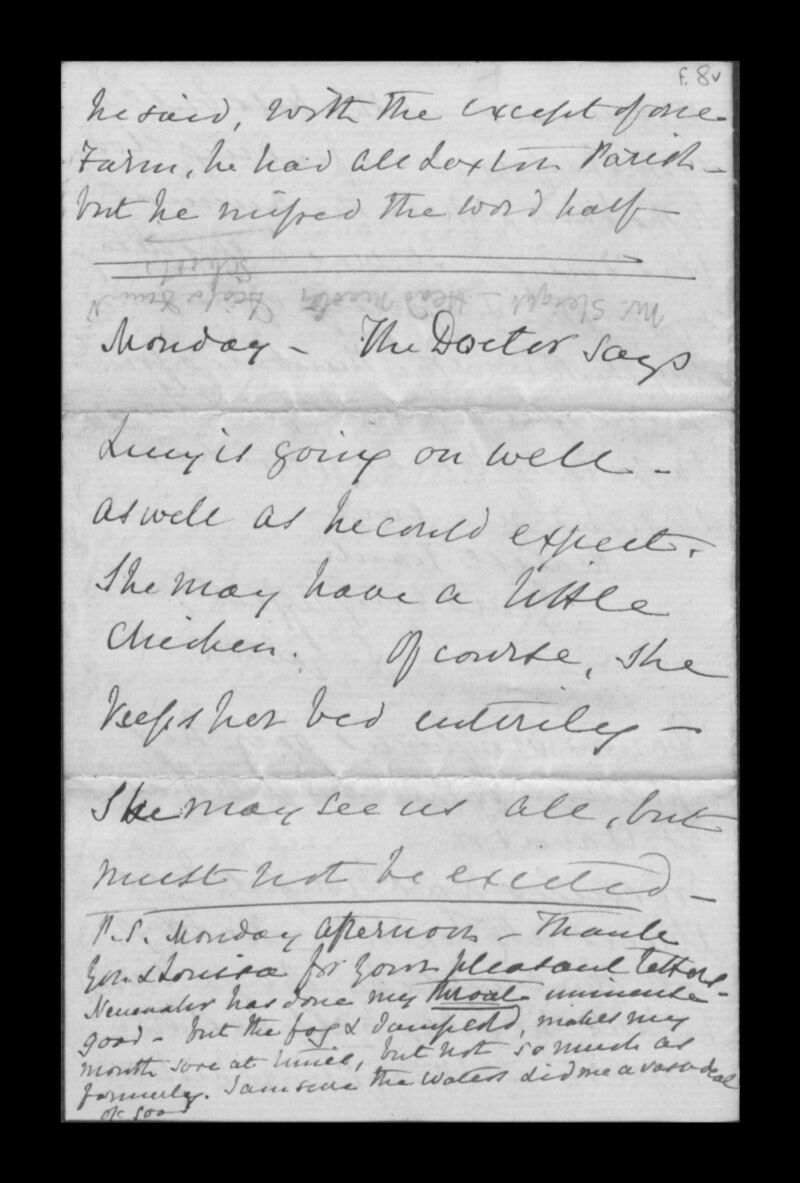 f. 8v
he said, with the except of one
Farm, he had all Loxton Parish -
but he missed the word half
Monday - The Doctor says
Lucy is going on well -
as well as he could expect.
She may have a little
Chicken. Of course, she
keeps her bed entirely -
She may see us all, but
must not be excited -
P.S. Monday afternoon - Thank
you & Louisa for your pleasant letters -
Neuenahr has done my throat immense
good - but the fog & damp cold, makes my
mouth sore at times, but not so much as
formerly. I am sure the waters did me a vast deal
of good